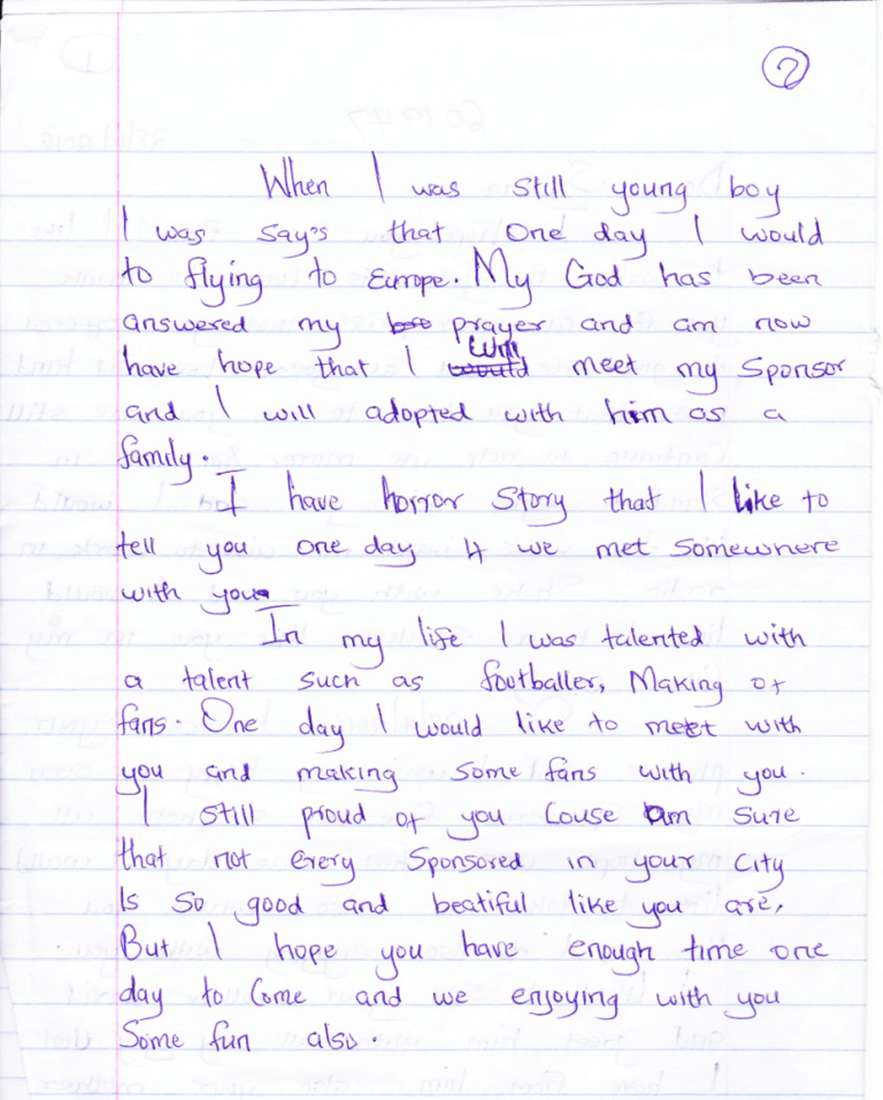 2
When I was still young boy
I was say's that One day I would
to flying to Europe. My God has been
answered my prayer and am now
have hope that I will would meet my Sponsor
and I will adopted with him as a
family.
I have horror Story that I like to
tell you one day If we met somewhere
with you.
In my life I was talented with
a talent such as footballer, Making of
fans. One day I would like to meet with
you and making some fans with you.
I still proud of you Couse am Sure
that not Every Sponsored in your City
Is so good and beatiful like you are,
But I hope you have enough time one
day to Come and we enjoying with you
Some fun also.